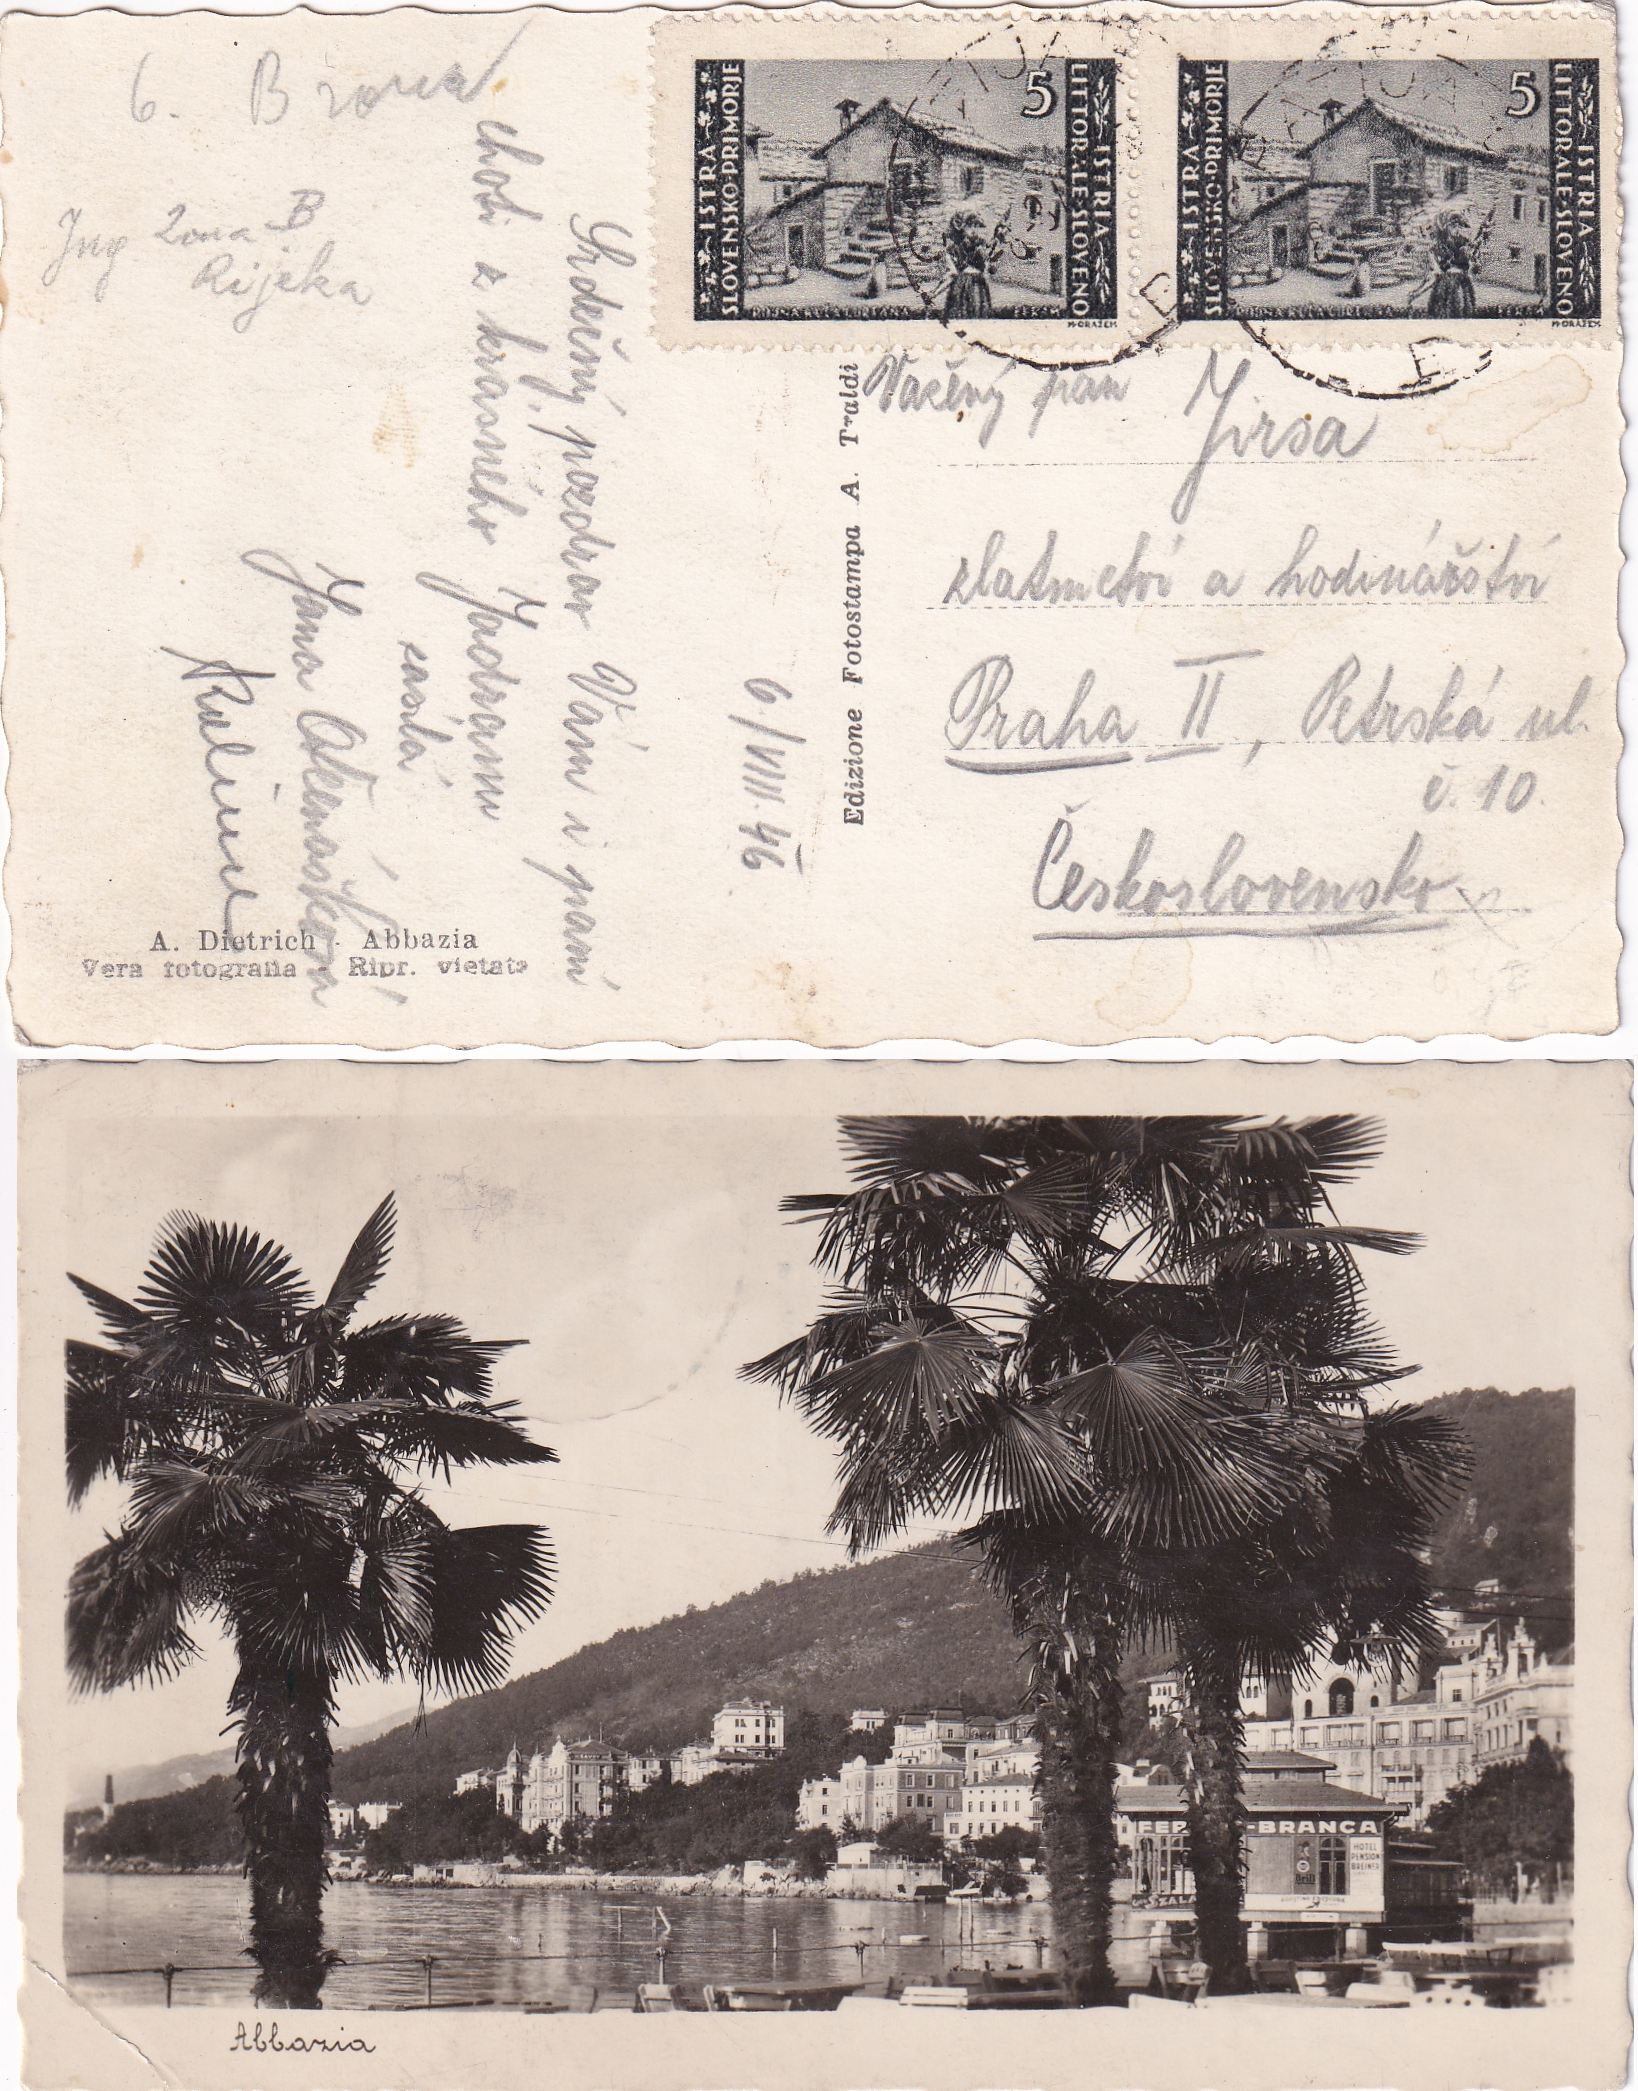 6. B zona
Jug Zona B
Rijeka
ISTRA
SLOVENSKO PRIMORJE
5
ISTRIA
LITTORALE SLOVENO
M·ORAŽEM
ISTRA
SLOVENSKO PRIMORJE
5
ISTRIA
LITTORALE SLOVENO
M·ORAŽEM
Srdečný pozdrav Vám i paní
choti z krásného Jadranu
zaslá
Jana
6/VIII. 46
A. Dietrich - Abbazia
Vera fotografia - Ripr. vietata
Edizione Fotostampa A. Traldi
Vážený pan Jirsa
zlatnictví a hodinářství
Praha II, Petrská ul.
č. 10.
Československo
FER -BRANCA
HOTEL
PENSION
BREINER
Abbazia